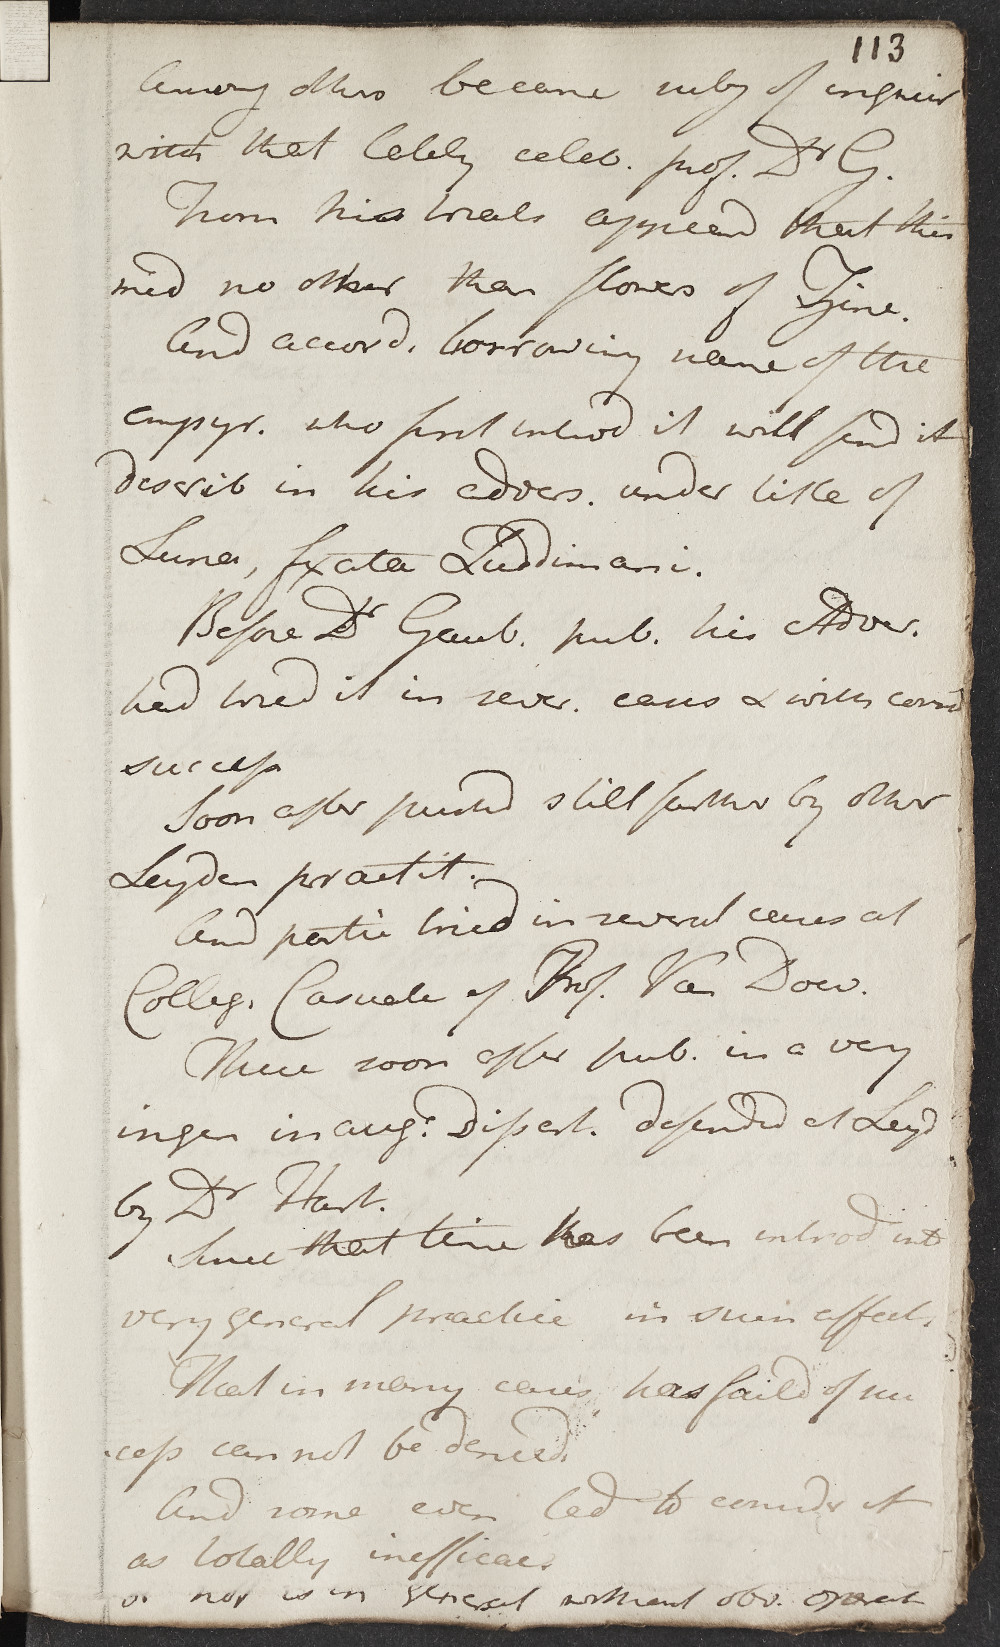 113
Among others became subj of inquir
with that lately celeb. prof. Dr G.
From his trials appeard that this
med no other than flowers of Zinc.
And accord. borrowing name of the
empyr. who first introd it will find it
describ in his advers. under title of
Luna, fixata Luddimani.
Before Dr Gaub. pub. his Adver.
had tried it in sever. cases & with consid
success
Soon after pushd still further by other
Leyden practit.
And partic tried in several cases at
Colleg. Casuale of Prof. Van Doev.
These soon after pub. in a very
ingen inaug. Dissert. defended at Leyd
by Dr Hart.
Since that time has been introd into
very general practice in simi affect.
That in many cases has faild of suc
cess can not be denied.
And some even led to consider it
as totally inefficac.
nor is in general without obv. operat